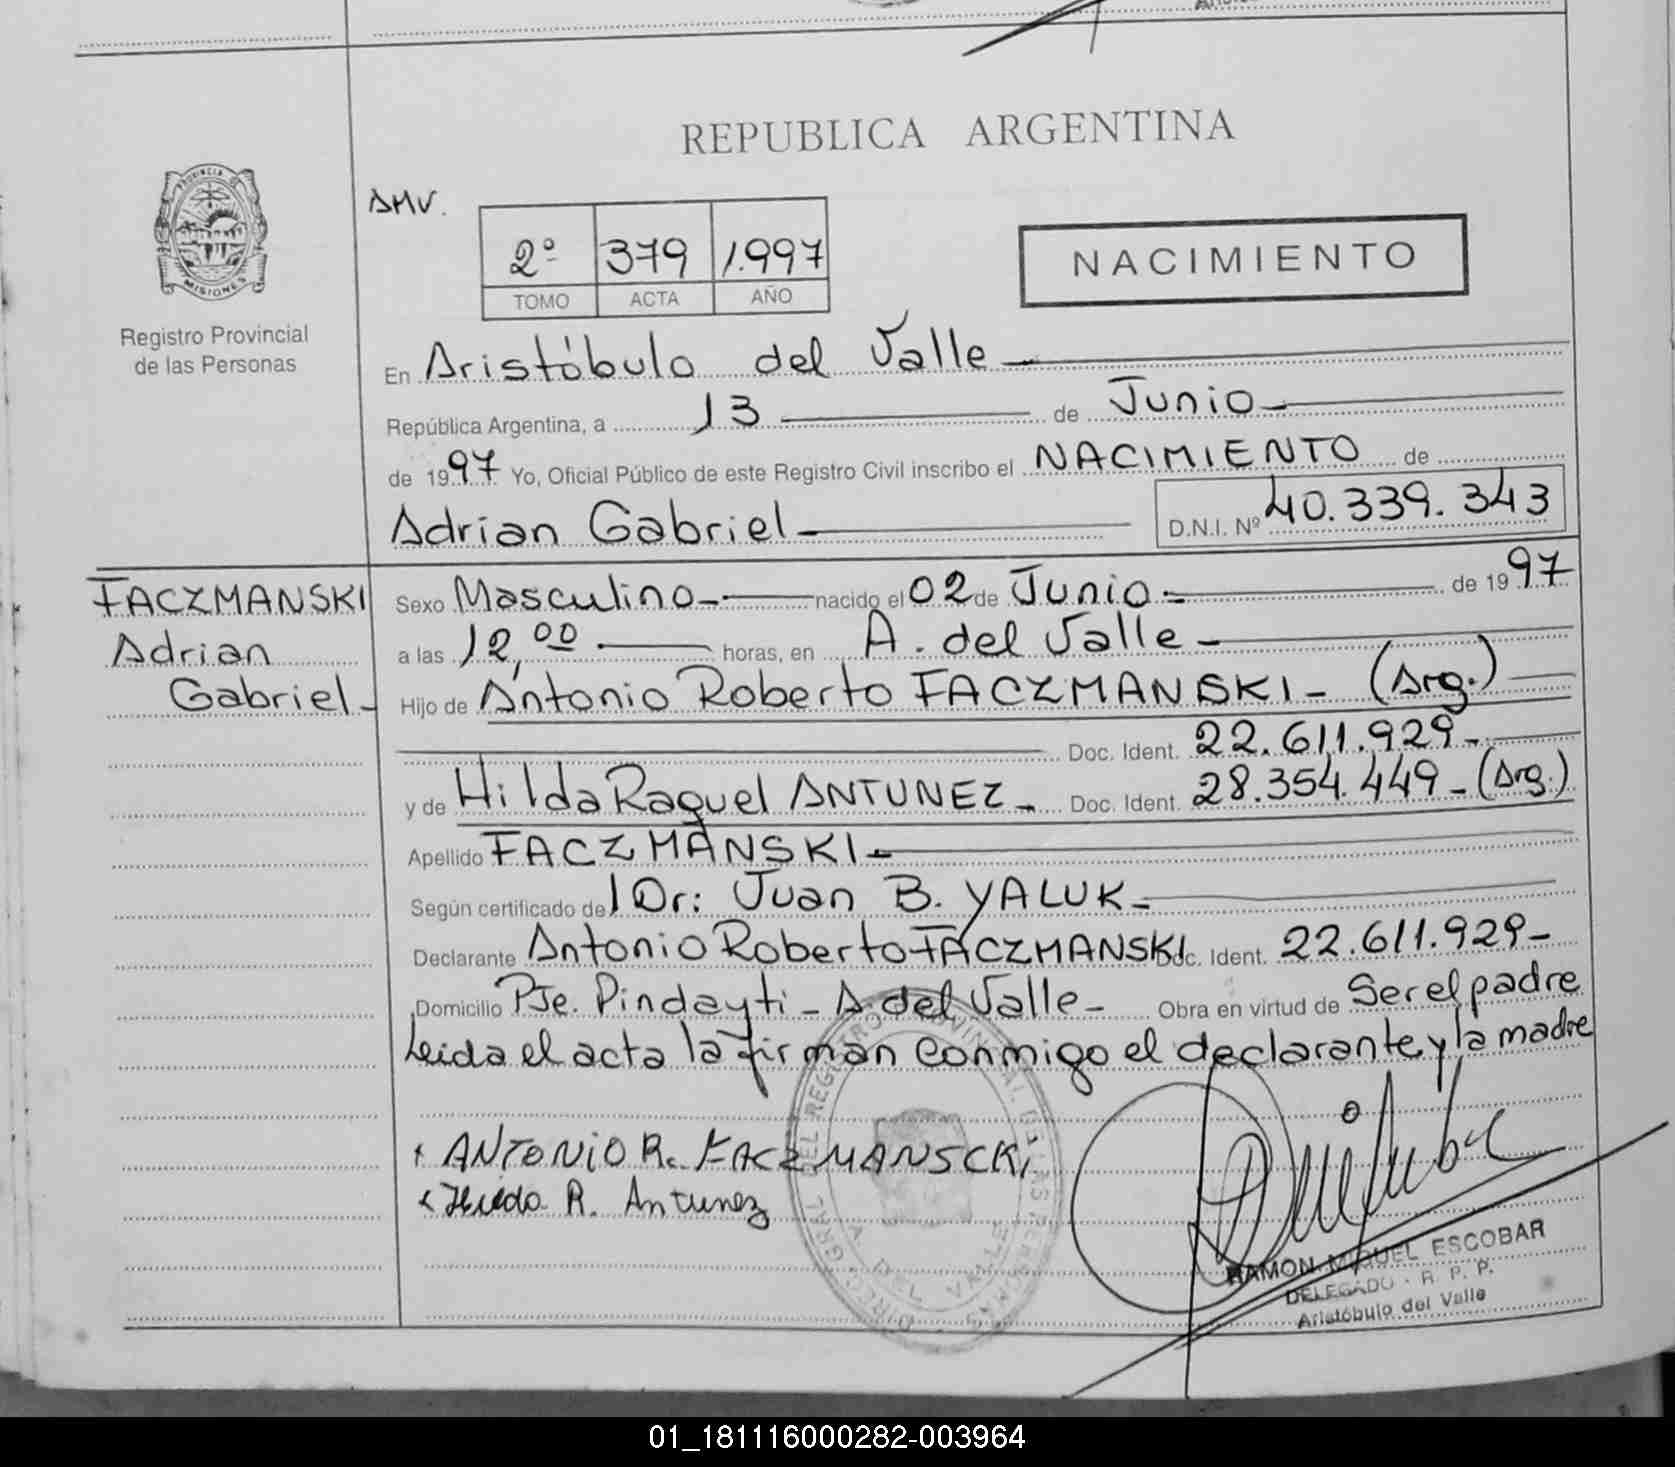 REPUBLICA ARGENTINA
PROVINCIA DE
MISIONES
Registro Provincial
de las Personas
AMV.
2º 379 1.997
TOMO ACTA AÑO
NACIMIENTO
En Aristóbulo del Valle
República Argentina, a 13 de Junio
de 1997 Yo, Oficial Público de este Registro Civil inscribo el NACIMIENTO de
Adrian Gabriel D.N.I. Nº 40.339.343
FACZMANSKI
Adrian
Gabriel
Sexo Masculino nacido el 02 de Junio de 1997
a las 12,00 horas, en A. del Valle
Hijo de Antonio Roberto FACZMANSKI - (Arg.)
Doc. Ident. 22.611.929-
y de Hilda Raquel ANTUNEZ - Doc. Ident. 28.354.449 - (Arg.)
Apellido FACZMANSKI
Según certificado del Dr: Juan B. YALUK
Declarante Antonio Roberto FACZMANSKI Doc. Ident. 22.611.929-
Domicilio Pje. Pindayti - A. del Valle - Obra en virtud de Ser el padre
Leida el acta la firman conmigo el declarante y la madre
ANTONIO R. FACZMANSCKi
Hilda R. Antunez
DIREC. GRAL DEL REGISTRO PROVINCIAL DE LAS PERSONAS
A. DEL VALLE
RAMON MIGUEL ESCOBAR
DELEGADO - R. P. P.
Aristóbulo del Valle
01_181116000282-003964